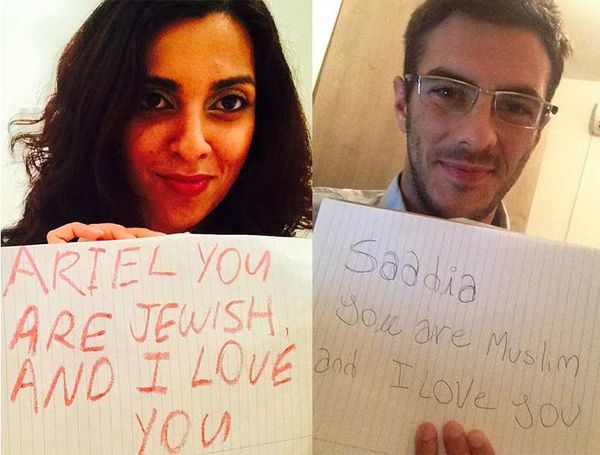 ARIEL YOU
ARE JEWISH,
AND I LOVE
YOU
Saadia
you are Muslim
and I love you